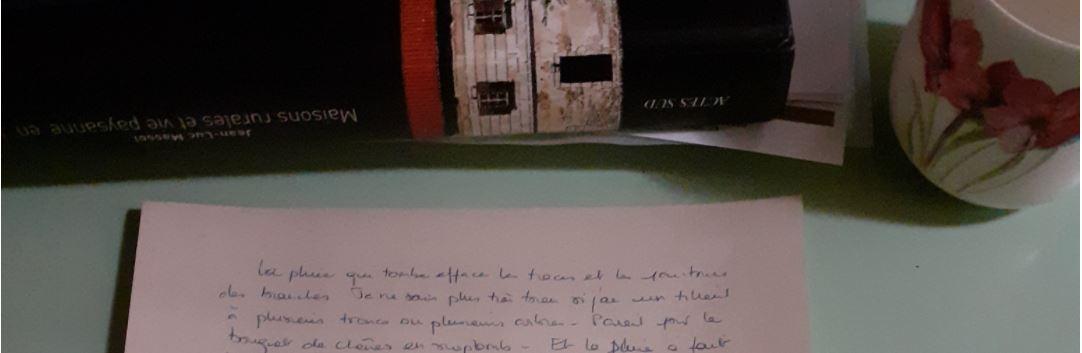 Maisons rurales et vie paysanne en
Jean-Luc Massot
ACTES SUD
La pluie qui tombe efface les traces et les
des branches Je ne sais plus très bien si j'ai un tilleul
à plusieurs troncs ou plusieurs arbres - Pareil pour le
bouquet de chênes en surplomb - Et la pluie a fait